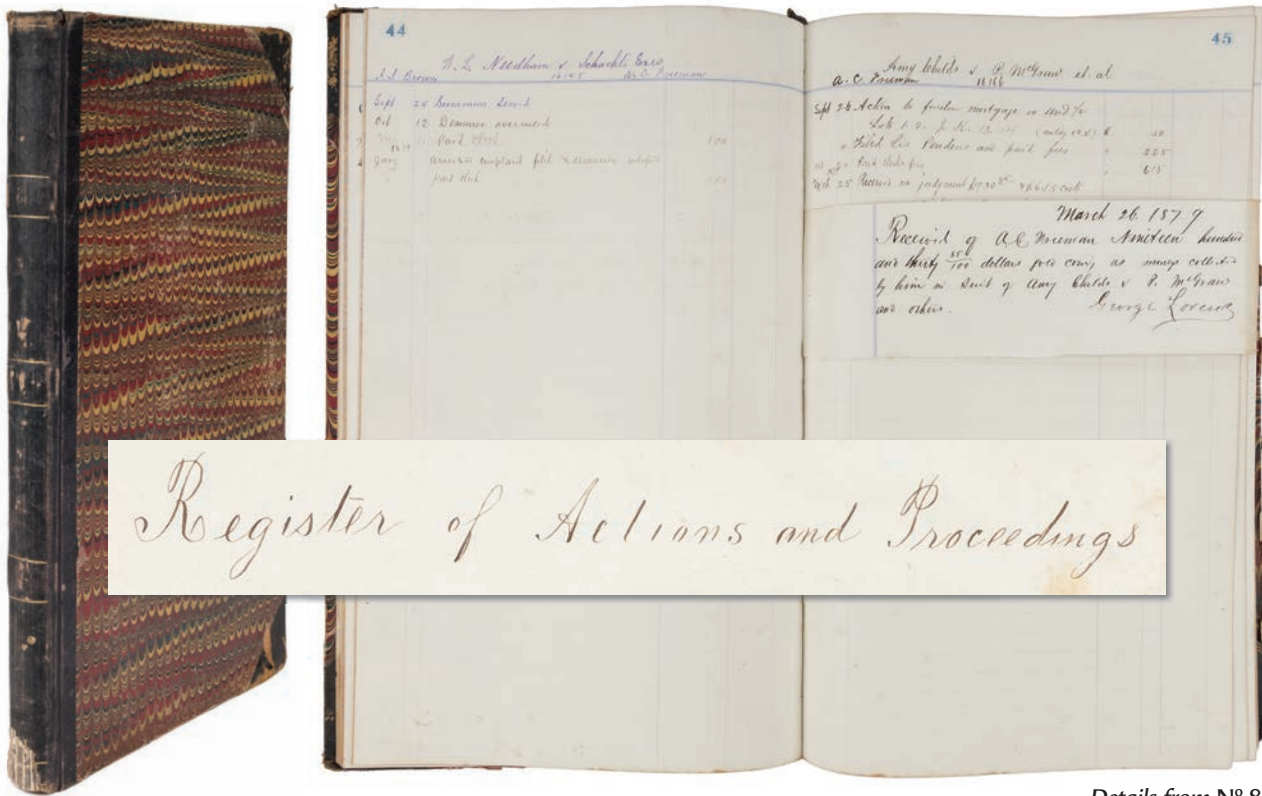 44
W. L. Needham v Schachti Exrs
16145
A. C. Freeman
Sept 24 Summons served
Oct 12 Demurrer overruled
Paid Clerk 100
Jany complaint filed
paid clerk
45
Amy Childs v P. McGraw et al
A. C. Freeman 16166
Sept 26 Action to foreclose mortgage on und ½
Lots
" Filed Lis Pendens and paid fees " 225
Paid clerks fees " 615
Mch 25 Received on judgment
March 26 1879
Received of A C Freeman Nineteen hundred
and thirty 85/100 dollars gold coin, as moneys collected
by him in Suit of Amy Childs v P. McGraw
and others.
George
Register of Actions and Proceedings
Details from Nº 8